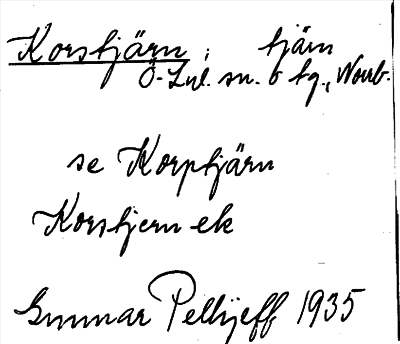 Korstjärn ; tjärn
Ö-Lul. sn. o tg., Norrb.
se Korptjärn
Korstjern ek
Gunnar Pellijeff 1935